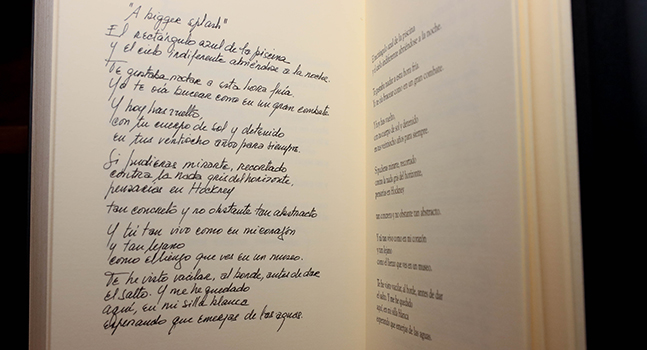 "A bigger splash"
El rectángulo azul de la piscina
y el cielo indiferente abriéndose a la noche.
Te gustaba nadar a esta hora fría.
Yo te vía bucear como en un gran combate.
Y hoy has vuelto,
con tu cuerpo de sol y detenido
en tus veintiocho años para siempre.
Si pudieras mirarte, recortado
contra la nada gris del horizonte,
pensarías en Hockney
tan concreto y no obstante tan abstracto
Y tú tan vivo como en mi corazón
y tan lejano
como el lienzo que ves en un museo.
Te he visto vacilar, al borde, antes de dar
el salto. Y me he quedado
aquí, en mi silla blanca
esperando que emerjas de las aguas.
El rectángulo azul de la piscina
y el cielo indiferente abriéndose a la noche.
Te gustaba nadar a esta hora fría.
bucear como en un gran combate.
Y hoy has vuelto,
con tu cuerpo de sol y detenido
en tus veintiocho años para siempre.
Si pudieras mirarte, recortado
contra la nada gris del horizonte,
pensarías en Hockney
tan concreto y no obstante tan abstracto.
Y tú tan vivo como en mi corazón
y tan lejano
como el lienzo que ves en un museo.
Te he visto vacilar, al borde, antes de dar
el salto. Y me he quedado
aquí, en mi silla blanca
esperando que emerjas de las aguas.